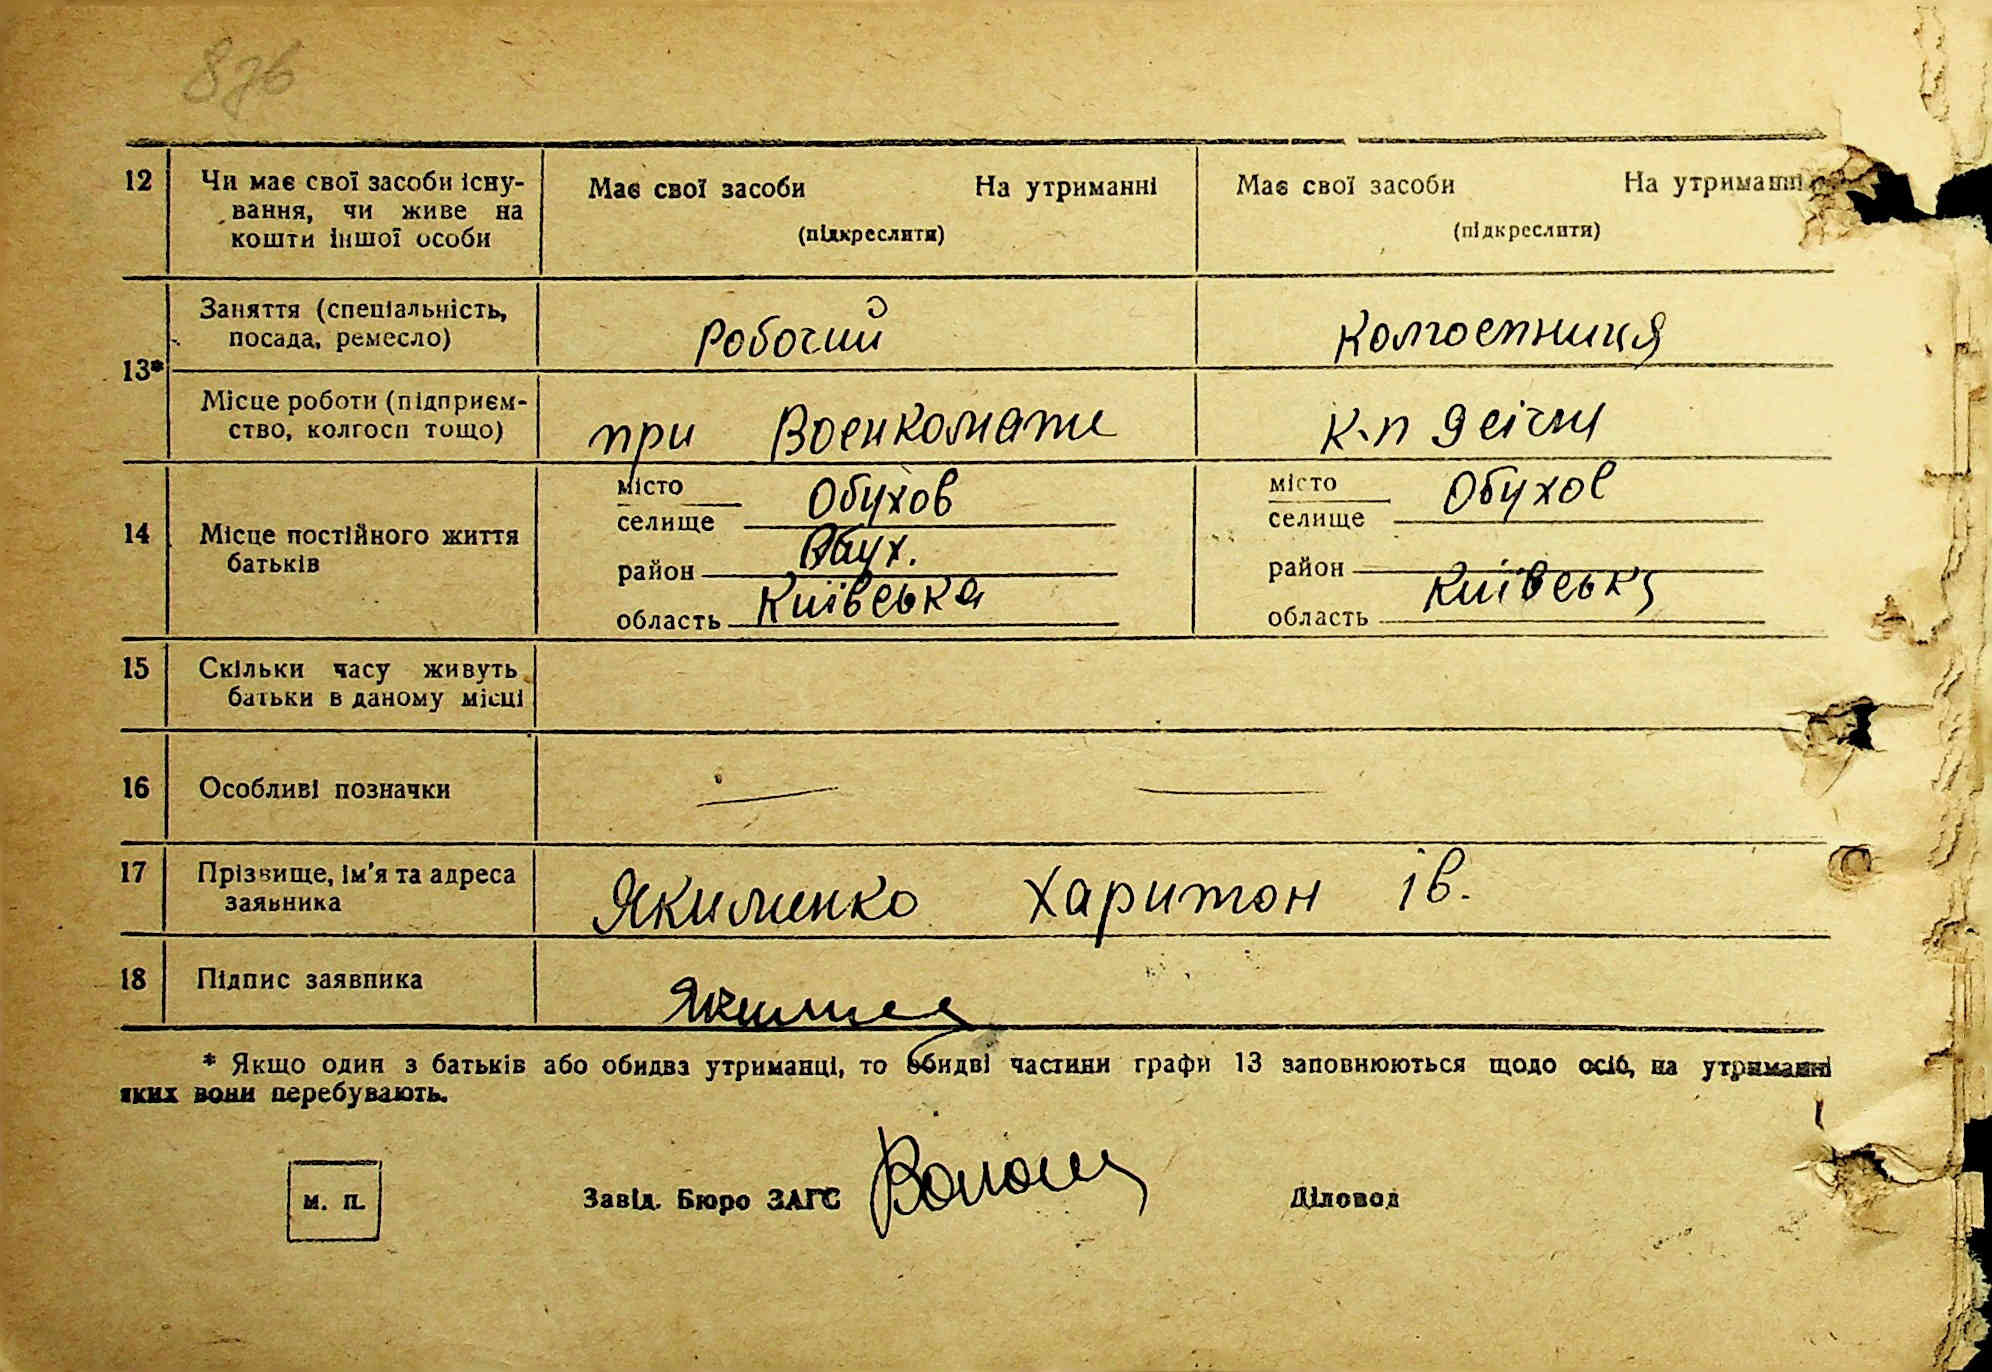 12 Чи має свої засоби існу-
вання, чи живе на
кошти іншої особи
Має свої засоби На утриманні
(підкреслити)
Має свої засоби На утриманні
(підкреслити)
13*
Заняття (спеціальність,
посада, ремесло)
Робочий
Колгоспниця
Місце роботи (підприєм-
ство, колгосп тощо)
при Военкомате
к-п 9 січня
14 Місце постійного життя
батьків
місто
селище Обухов
район Обух.
область Київська
місто
селище Обухов
район
область Київська
15 Скільки часу живуть
батьки в даному місці
16 Особливі позначки
17 Прізвище, ім'я та адреса
заявника
Якименко Харитон Ів.
18 Підпис заявника
* Якщо один з батьків або обидва утриманці, то обидві частини графи 13 заповнюються щодо осіб, на утриманні
яких вони перебувають.
м. п.
Завід. Бюро ЗАГС
Діловод